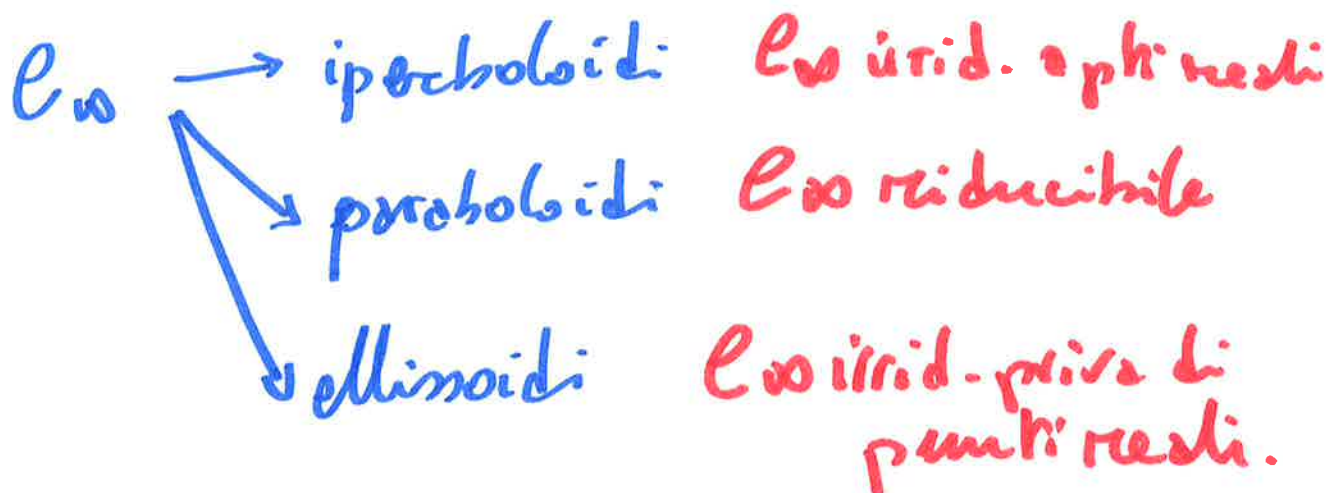 C∞ → iperboloidi C∞ irrid. a pti reali
paraboloidi C∞ riducibile
ellissoidi C∞ irrid. priva di
punti reali.